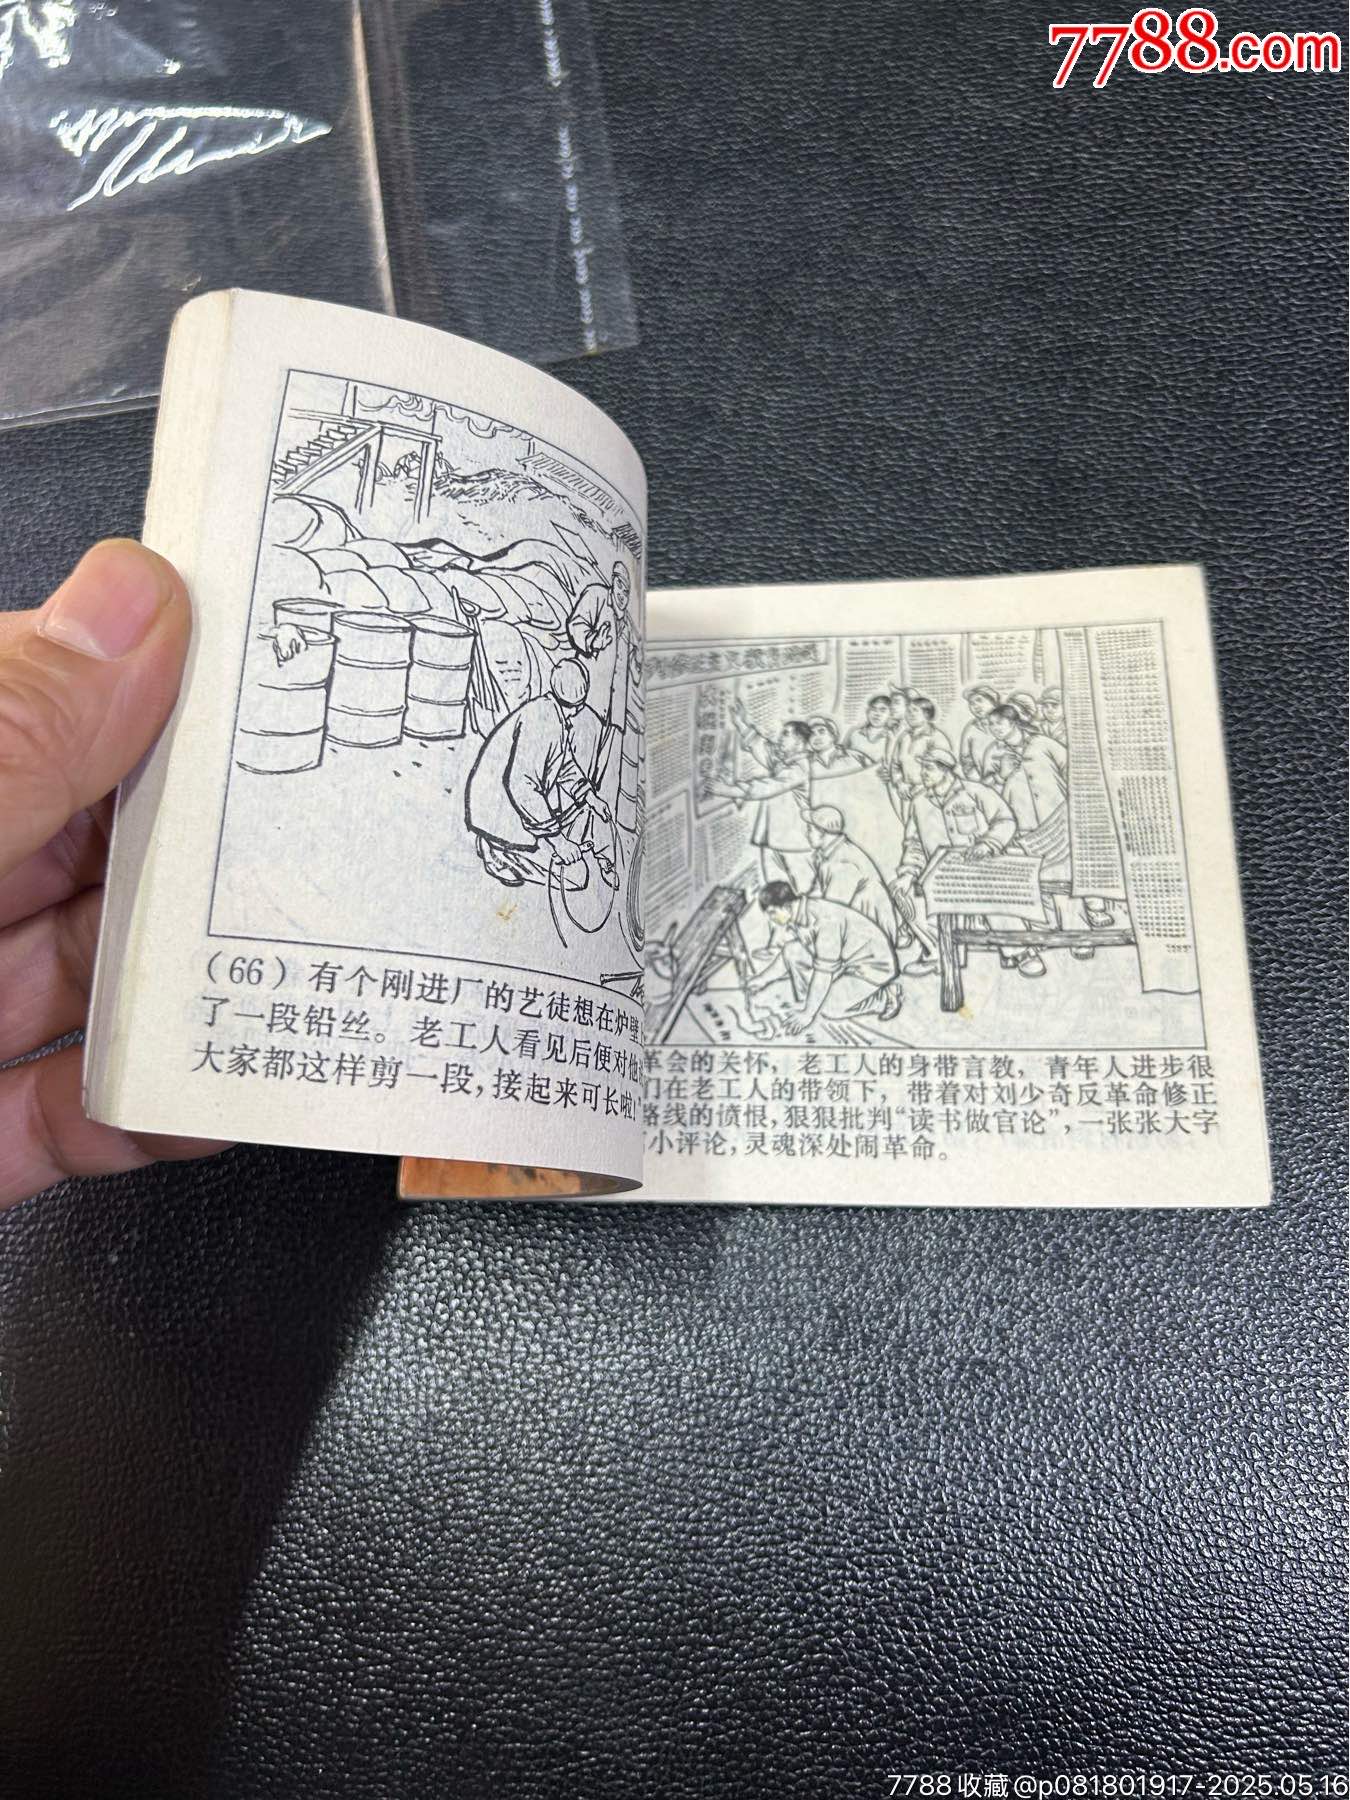 7788.com
（66）有个刚进厂的艺徒想在炉壁
了一段铅丝。老工人看见后便对他
大家都这样剪一段，接起来可长啦！
革会的关怀，老工人的身带言教，青年人进步很
们在老工人的带领下，带着对刘少奇反革命修正
路线的愤恨，狠狠批判“读书做官论”，一张张大字
小评论，灵魂深处闹革命。
7788收藏@p081801917-2025.05.16